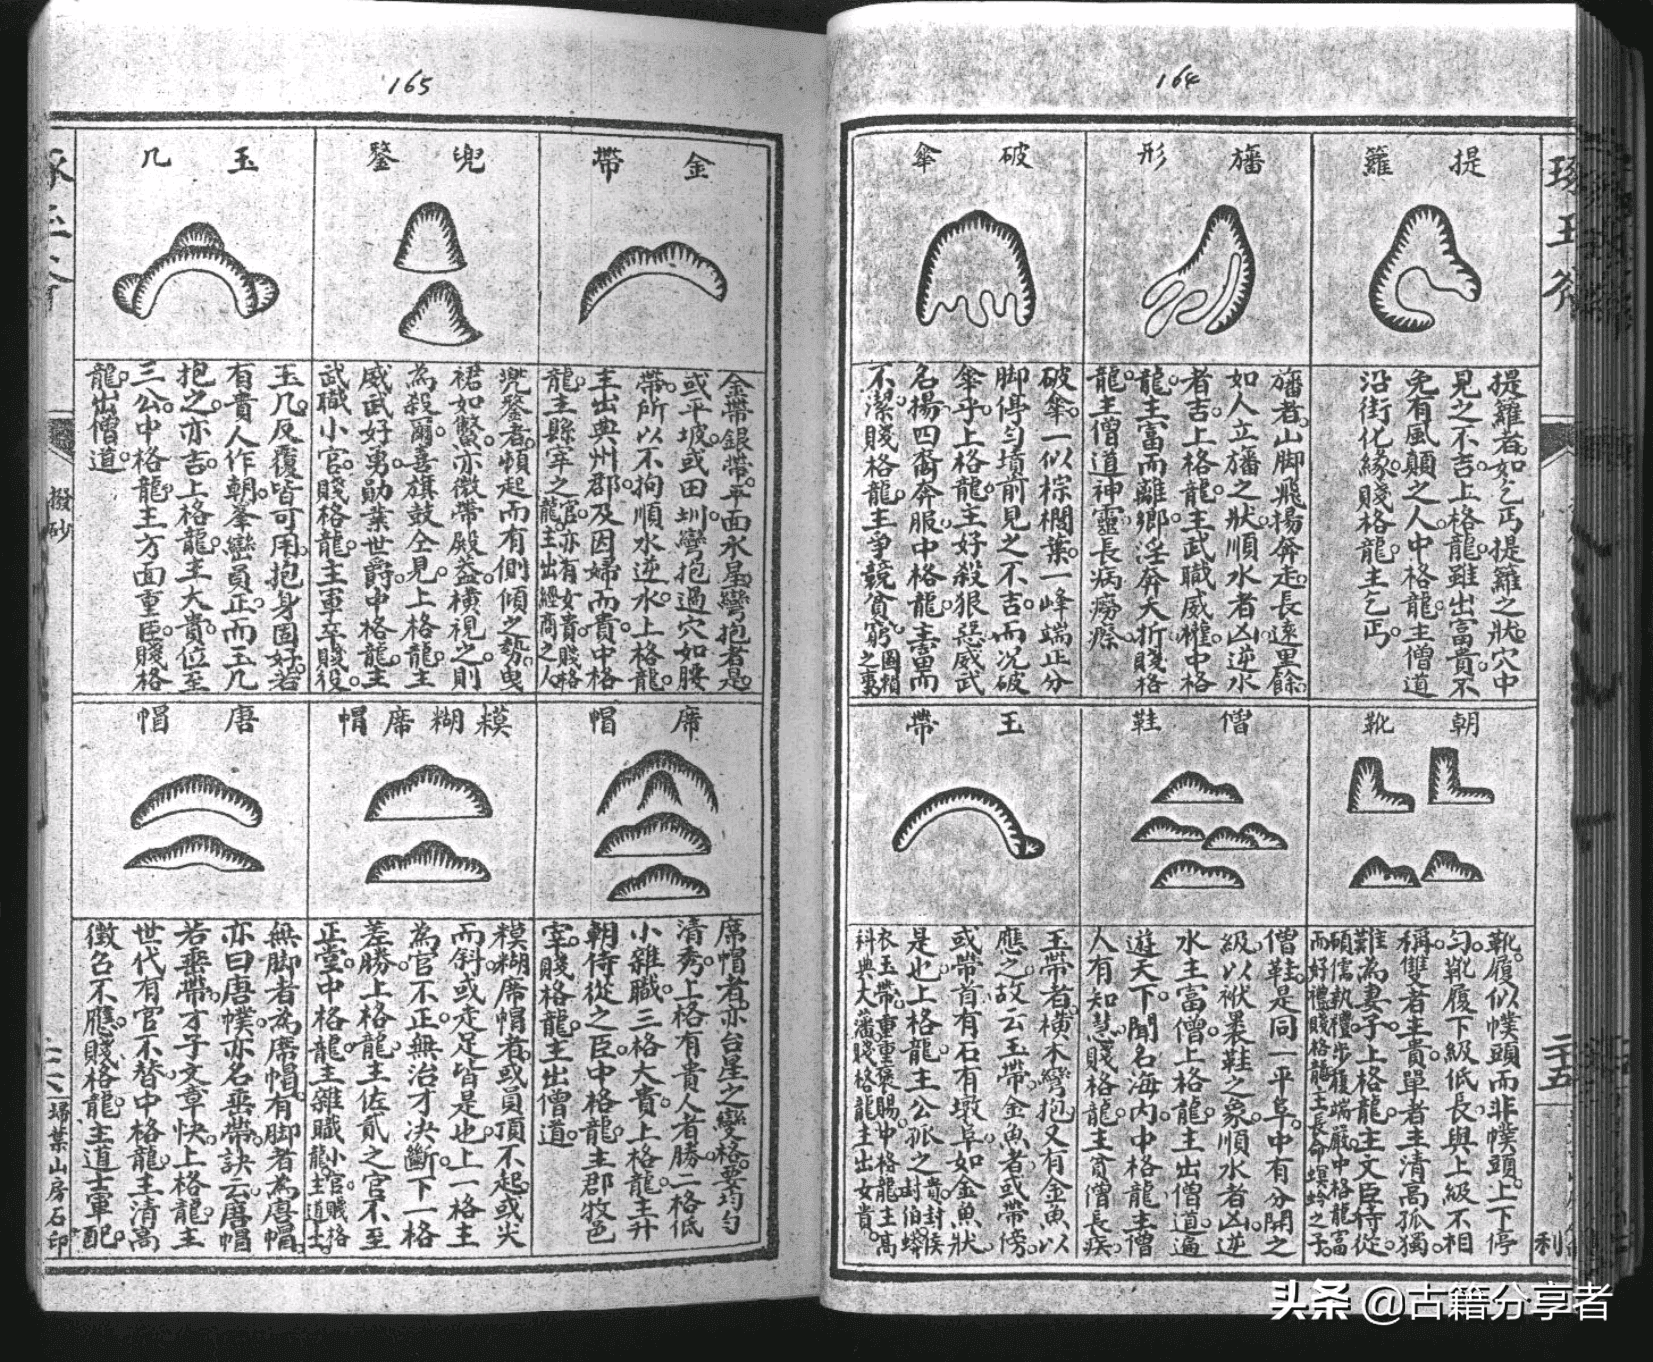 164
提籮
提籮者如乞丐提籮之狀穴中
見之不吉上格龍雖出富貴不
免有風顛之人中格龍主僧道
沿街化緣賤格龍主乞丐
旛形
旛者山脚飛揚奔走長遠里餘
如人立旛之狀順水者凶逆水
者吉上格龍主武職威權中格
龍主富而離鄉淫奔夭折賤格
龍主僧道神靈長病癆瘵
破傘
破傘一似棕櫚葉一峰端正分
脚停勻墳前見之不吉而况破
傘乎上格龍主好殺狠惡威武
名揚四裔奔服中格龍主富而
不潔賤格龍主爭競貧窮圖賴之事
朝靴
靴履似幞頭而非幞頭上下停
勻靴履下級低長與上級不相
稱雙者主貴單者主清高孤獨
難為妻子上格龍主文臣侍從
碩儒執禮步履端嚴中格龍富
而好禮賤格龍主長命螟蛉之子
僧鞋
僧鞋是同一平阜中有分開之
級以袱裹鞋之象順水者凶逆
水主富僧上格龍主出僧道遍
遊天下聞名海内中格龍主僧
人有知慧賤格龍主貧僧長疾
玉帶
玉帶者橫木彎抱又有金魚以
應之故云玉帶金魚者或帶傍
或帶首有石有墩阜如金魚狀
是也上格龍主公孤之貴封侯封伯蟒
衣玉帶重重褒賜中格龍主高
科典大藩賤格龍主出女貴
二十五
利
165
金帶
金帶銀帶平面水星彎抱者是
或平坡或田圳彎抱過穴如腰
帶所以不拘順水逆水上格龍
主出典州郡及因婦而貴中格
龍主縣宰之官亦有女貴賤格龍主出經商之人
兜鍪
兜鍪者頓起而有側傾之勢曳
裙如鱉亦微帶殿益橫視之則
為殺爾喜旗鼓仝見上格龍主
威武好勇勛業世爵中格龍主
武職小官賤格龍主軍卒賤役
玉几
玉几反覆皆可用抱身固好若
有貴人作朝峯巒員正而玉几
抱之亦吉上格龍主大貴位至
三公中格龍主方面重臣賤格
龍出僧道
席帽
席帽者亦台星之變格要均勻
清秀上格有貴人者勝一格低
小雜職三格大貴上格龍主升
朝侍從之臣中格龍主郡牧邑
宰賤格龍主出僧道
糢糊席帽
糢糊席帽者或員頂不起或尖
而斜或走足皆是也上一格主
為官不正無治才决斷下一格
差勝上格龍主佐貳之官不至
正堂中格龍主雜職小官賤格龍主道士
唐帽
無脚者為席帽有脚者為唐帽
亦曰唐幞亦名垂帶訣云唐帽
若垂帶才子文章快上格龍主
世代有官不替中格龍主清高
徵召不應賤格龍主道士軍配
撥砂
掃葉山房石印
头条 @古籍分享者